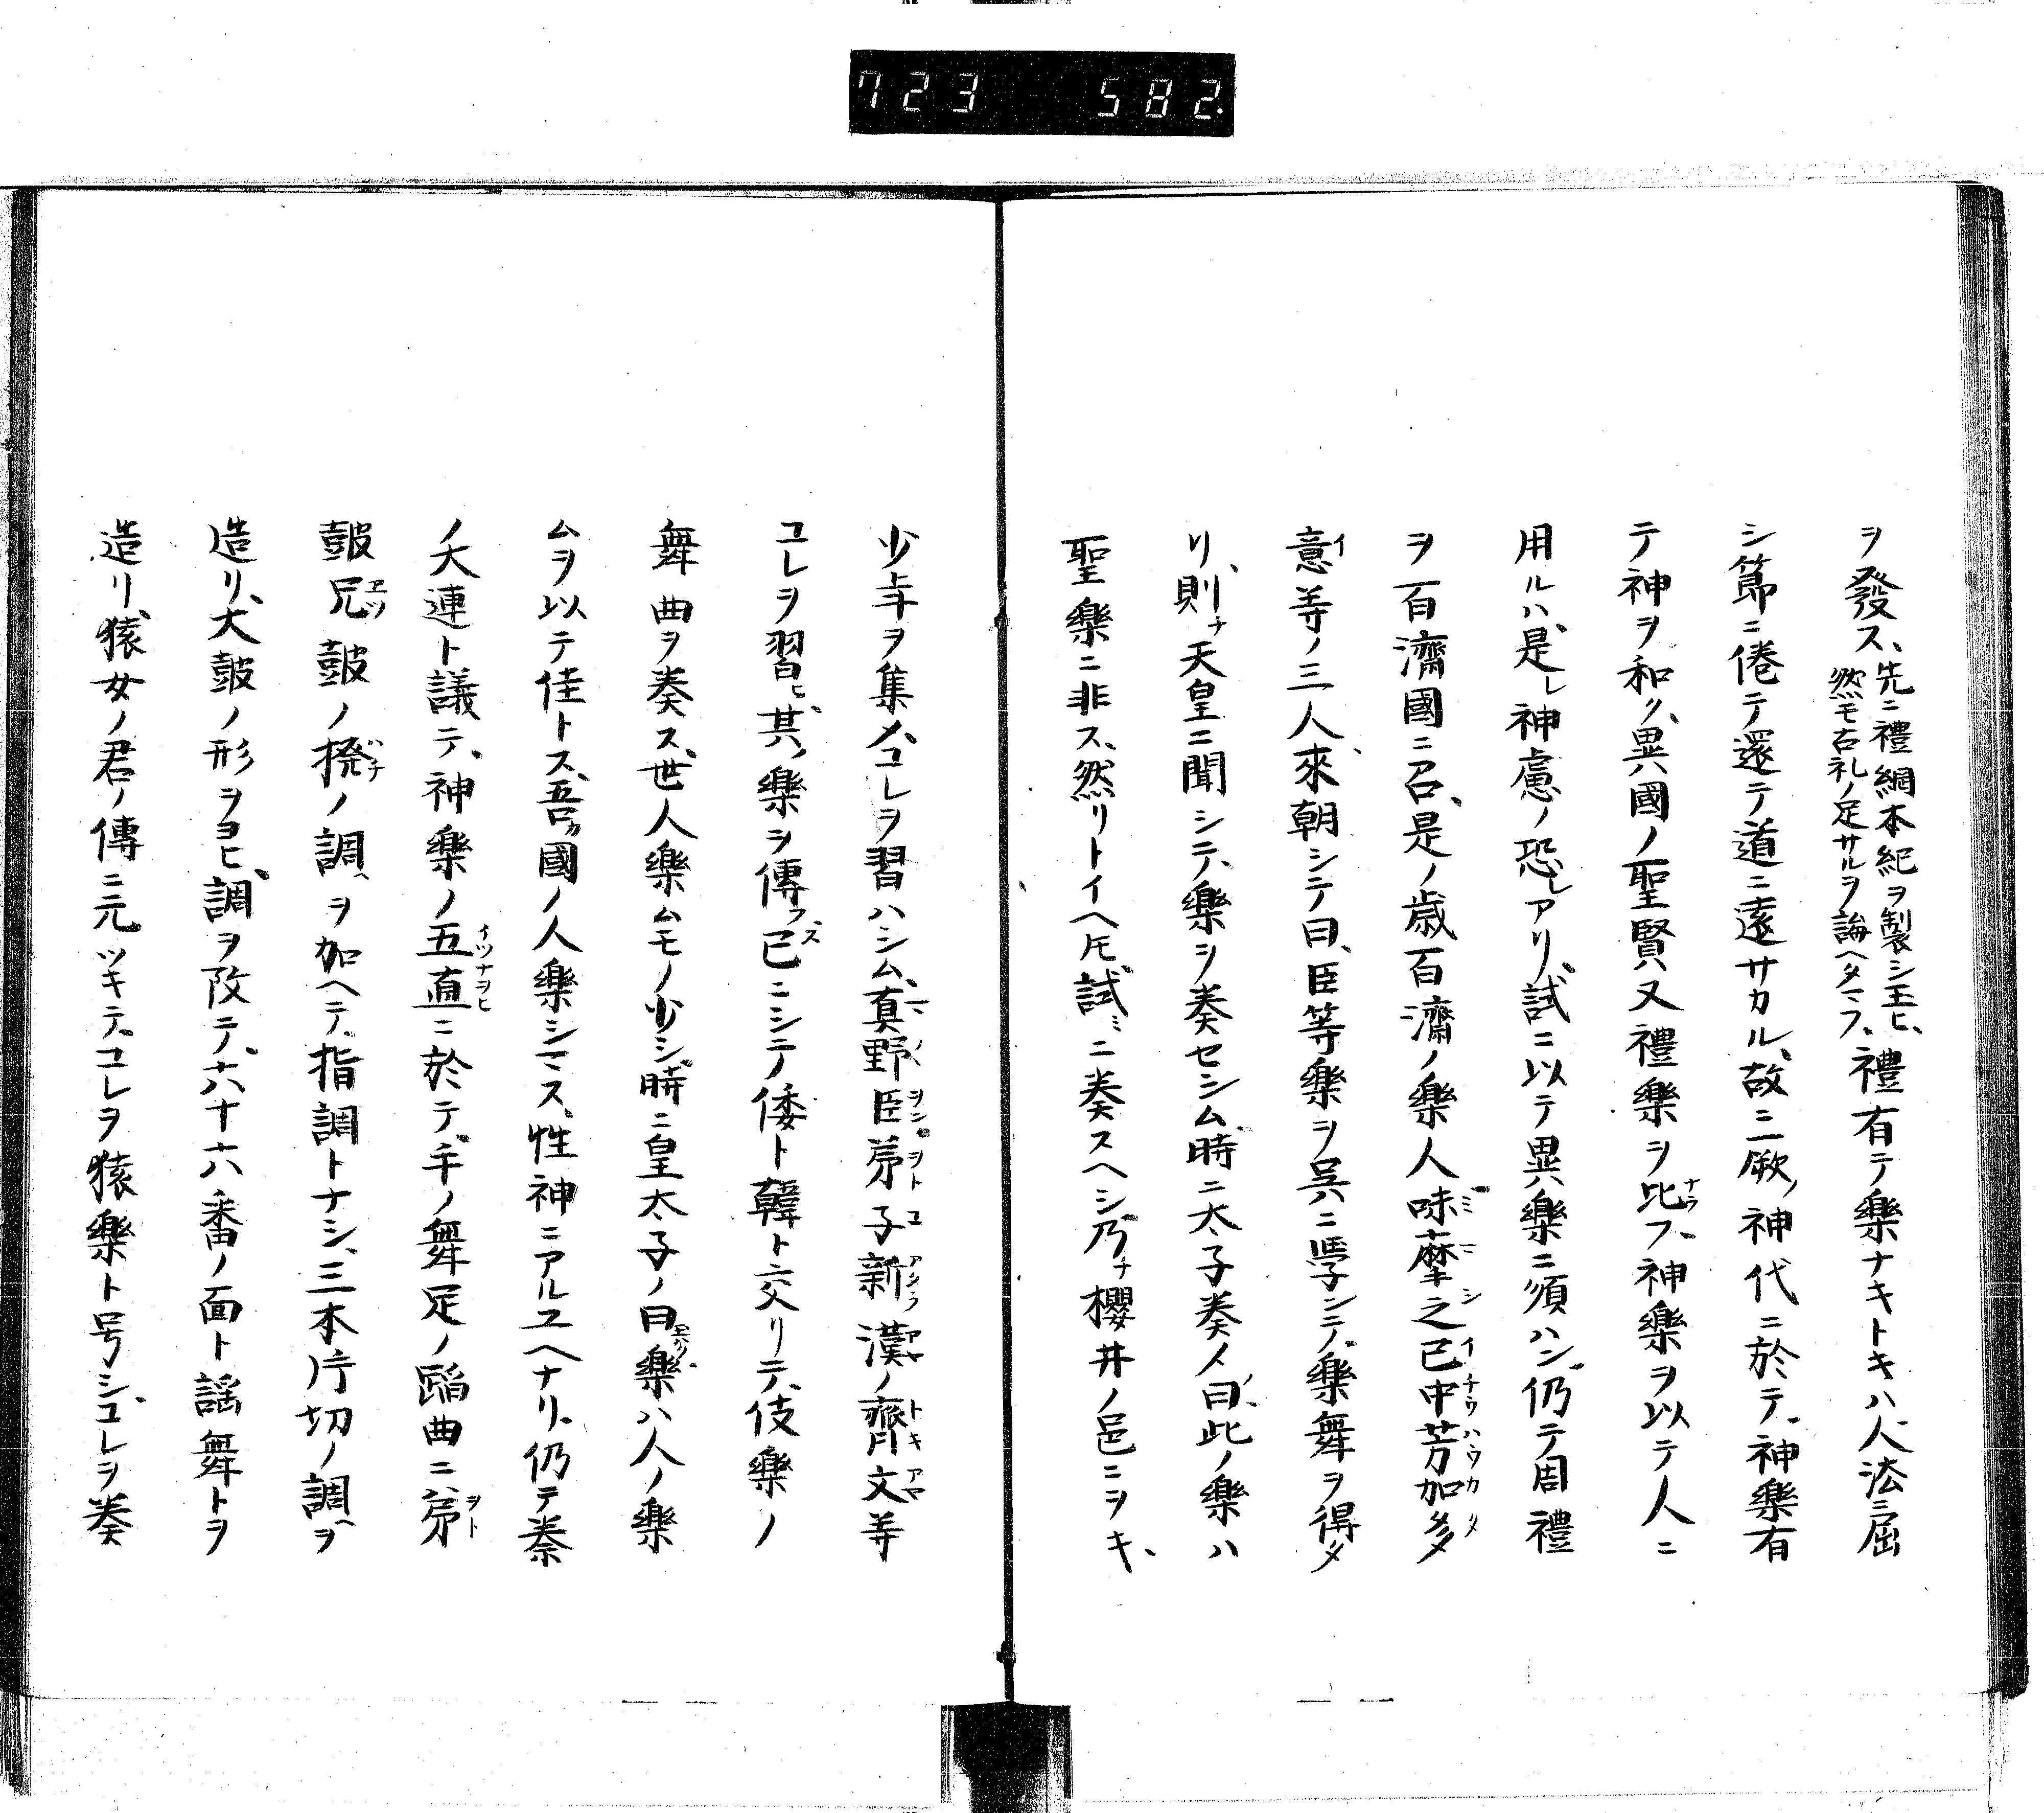 723 582
ヲ發ス、先ニ禮綱本紀ヲ製シ玉ヒ、然モ古礼ノ足サルヲ論ヘタマフ、禮有テ樂ナキトキハ人法ニ屈
シ節ニ倦テ還テ道ニ遠サカル、故ニ厥ノ神代ニ於テ、神樂有
テ神ヲ和ク、異國ノ聖賢又禮樂ヲ比フ、神樂ヲ以テ人ニ
用ルハ、是レ神慮ノ恐レアリ、試ニ以テ異樂ニ須ハン、仍テ周禮
ヲ百濟國ニ召、是ノ歳百濟ノ樂人味摩之已中芳加多
意等ノ三人來朝シテ曰、臣等樂ヲ吳ニ學ンテ、樂舞ヲ得タ
リ、則チ天皇ニ聞シテ、樂ヲ奏セシム、時ニ太子奏メ曰、此ノ樂ハ
聖樂ニ非ス、然リトイヘ𪜈、試ミニ奏スヘシ、乃チ櫻井ノ邑ニヲキ、
少年ヲ集メ、コレヲ習ハシム、真野臣弟子新漢ノ齊文等
コレヲ習ヒ、其ノ樂ヲ傳フ、已ニシテ倭ト韓ト交リテ、伎樂ノ
舞曲ヲ奏ス、世人樂ムモノ少シ、時ニ皇太子ノ曰、樂ハ人ノ樂
ムヲ以テ佳トス、吾カ國ノ人樂シマス、性神ニアルユヘナリ、仍テ秦
ノ大連ト議テ、神樂ノ五直ニ於テ、手ノ舞足ノ蹈曲ニ、弟
鼓兄鼓ノ撥ノ調ヘヲ加ヘテ、指調トナシ、三本片切ノ調ヘヲ
造リ、大鼓ノ形ヲヨヒ、調ヲ改テ、六十六番ノ面ト謡舞トヲ
造リ、猿女ノ君ノ傳ニ元ツキテ、コレヲ猿樂ト号シ、コレヲ奏